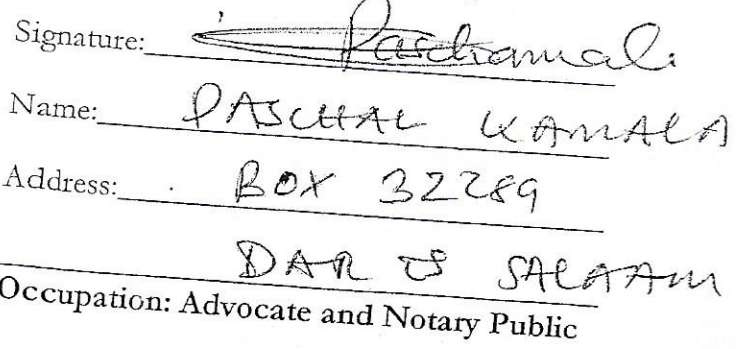 Signature: Paschamali
Name: PASCHAL KAMALA
Address: BOX 32289
DAR ES SALAAM
Occupation: Advocate and Notary Public